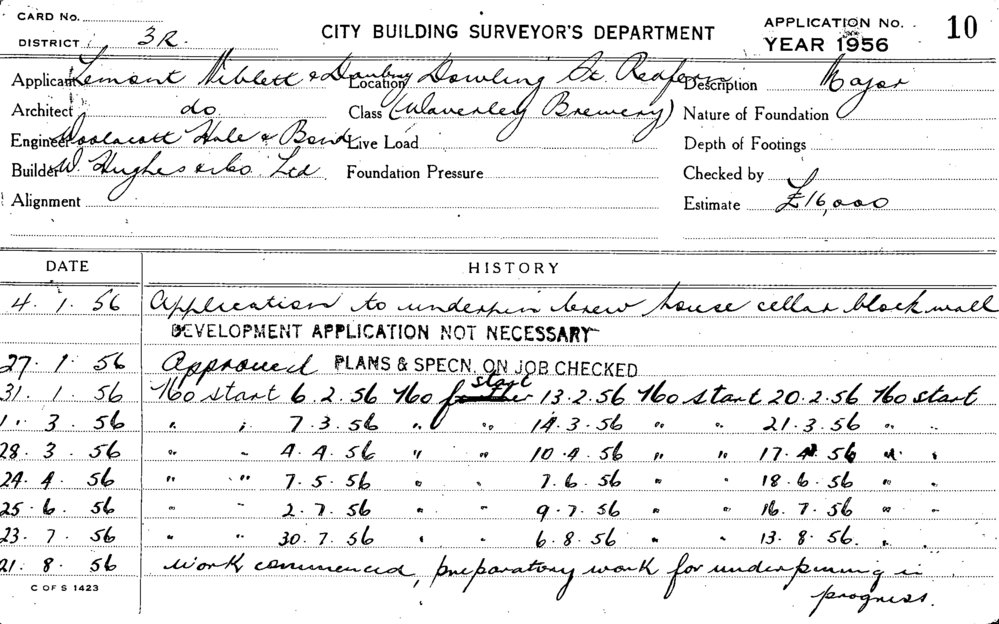 CARD No.
DISTRICT 3R.
CITY BUILDING SURVEYOR'S DEPARTMENT
APPLICATION No. 10
YEAR 1956
Applicant Lemont Niblett & Danbury Location Dowling St. Redfern Description Major
Architect do Class (Waverley Brewery) Nature of Foundation
Engineer Woolacott Hale & Bond Live Load Depth of Footings
Builder W. Hughes & Co. Ltd Foundation Pressure Checked by
Alignment Estimate £16,000
DATE HISTORY
4. 1. 56 Application to underpin brew house cellar block wall
DEVELOPMENT APPLICATION NOT NECESSARY
27. 1. 56 Approved PLANS & SPECN. ON JOB CHECKED
31. 1. 56 No start 6.2.56 No start 13.2.56 No start 20.2.56 No start
1. 3. 56 " " 7.3.56 " " 14.3.56 " " 21.3.56 " "
28. 3. 56 " " 4.4.56 " " 10.4.56 " " 17.4.56 " "
24. 4. 56 " " 7.5.56 " " 7.6.56 " " 18.6.56 " "
25. 6. 56 " " 2.7.56 " " 9.7.56 " " 16.7.56 " "
23. 7. 56 " " 30.7.56 " " 6.8.56 " " 13.8.56. " "
21. 8. 56 work commenced, preparatory work for underpinning in
progress.
C OF S 1423